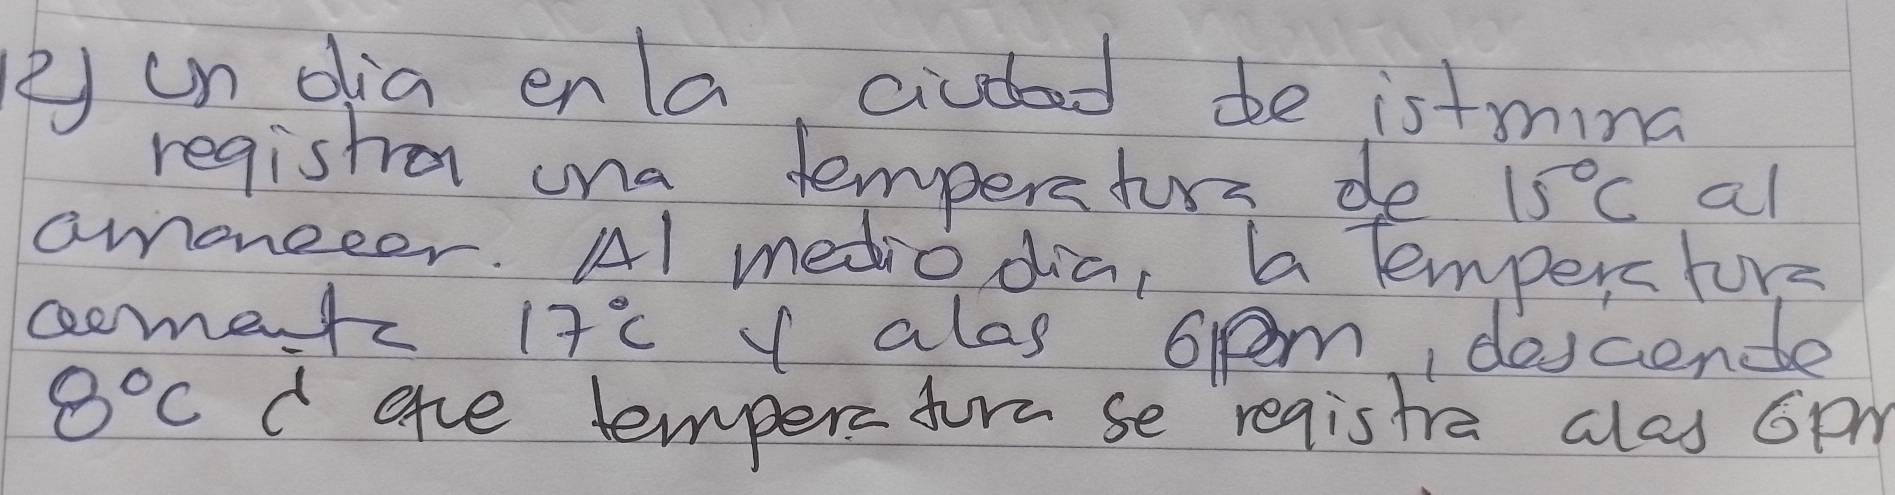 12) un dia en la ciudad de istmina
registra una temperatura de 15°C al
amanecer. Al medio dia, la Temperatura
aumenta 17°C y alas 6pm, desciende
8°C ¿ que temperatura se registra alas 6pm